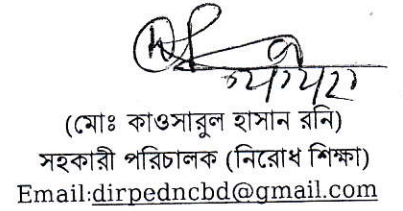 (মোঃ কাওসারুল হাসান রনি)
সহকারী পরিচালক (নিরোধ শিক্ষা)
Email:dirpedncbd@gmail.com